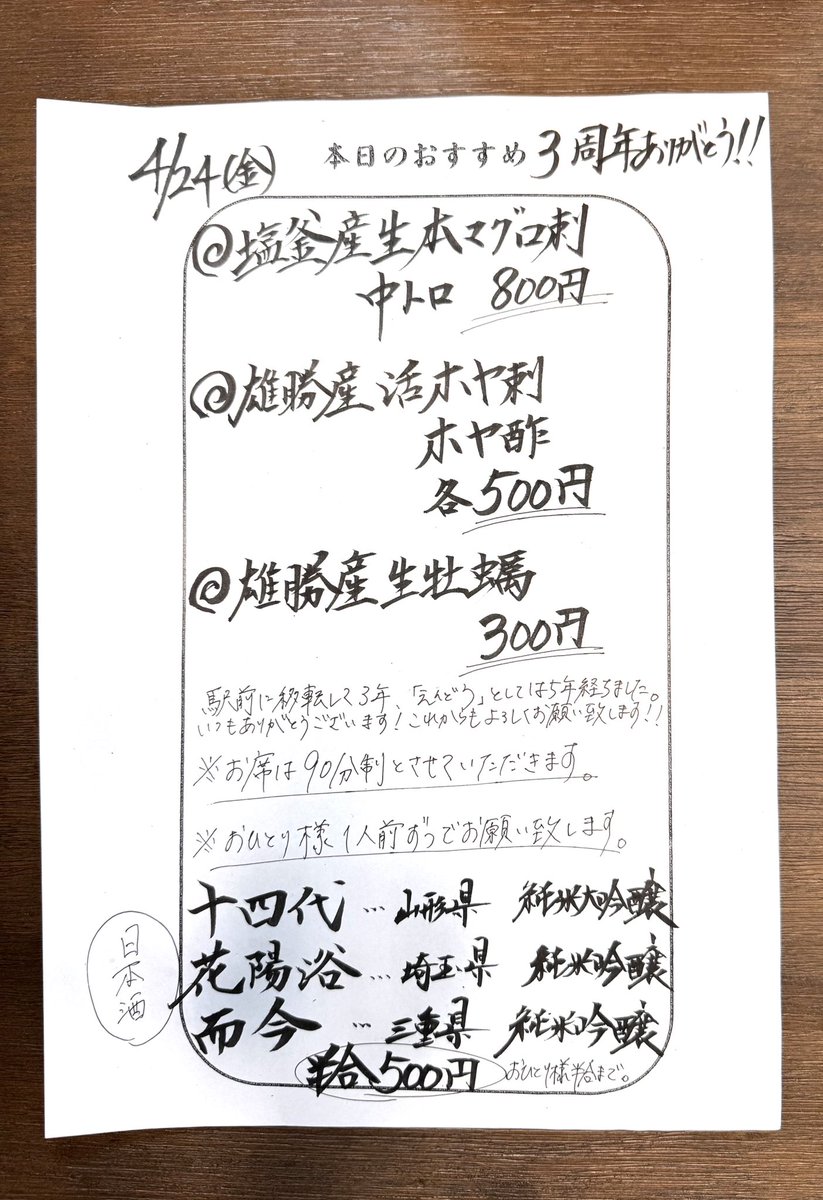 4/24(金) 本日のおすすめ 3周年ありがとう!!
@塩釜産生本マグロ刺
中トロ 800円
@雄勝産 活ホヤ刺
ホヤ酢
各500円
@雄勝産生牡蠣
300円
駅前に移転して3年、「えんどう」としては5年経ちました。
いつもありがとうございます!これからもよろしくお願い致します!!
※お席は90分制とさせていただきます。
※おひとり様1人前ずつでお願い致します。
日本酒
十四代…山形県 純米大吟醸
花陽浴…埼玉県 純米吟醸
而今…三重県 純米吟醸
半合500円 おひとり様半合まで。